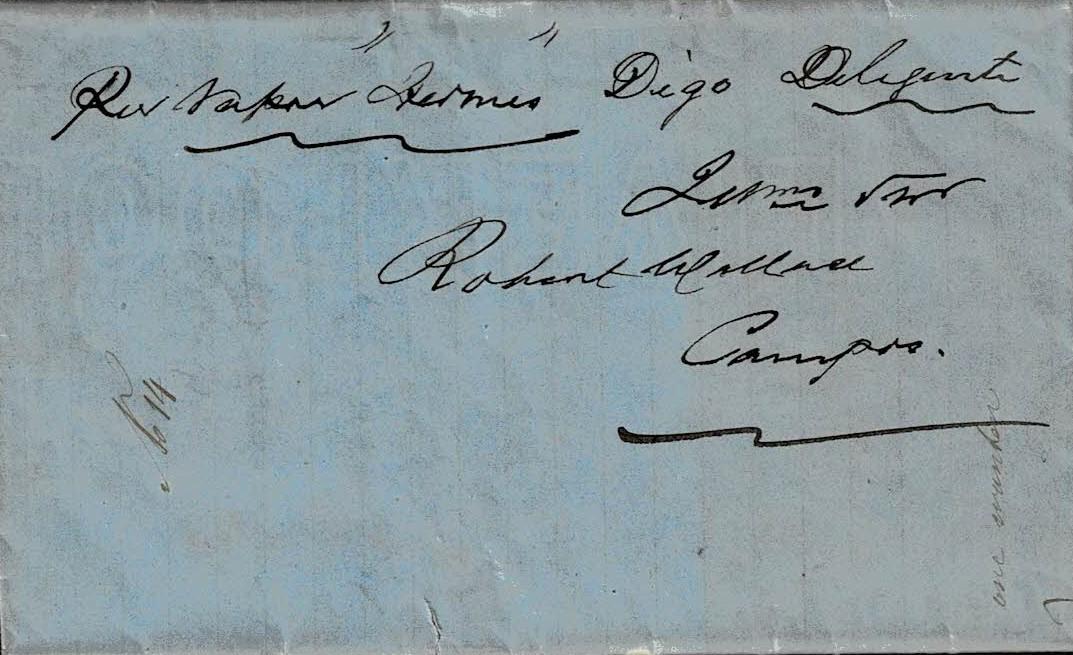 Per Vapor "Hermes" Digo Deligente
Illmo Snr
Robert Wallace
Campos.
614
one number